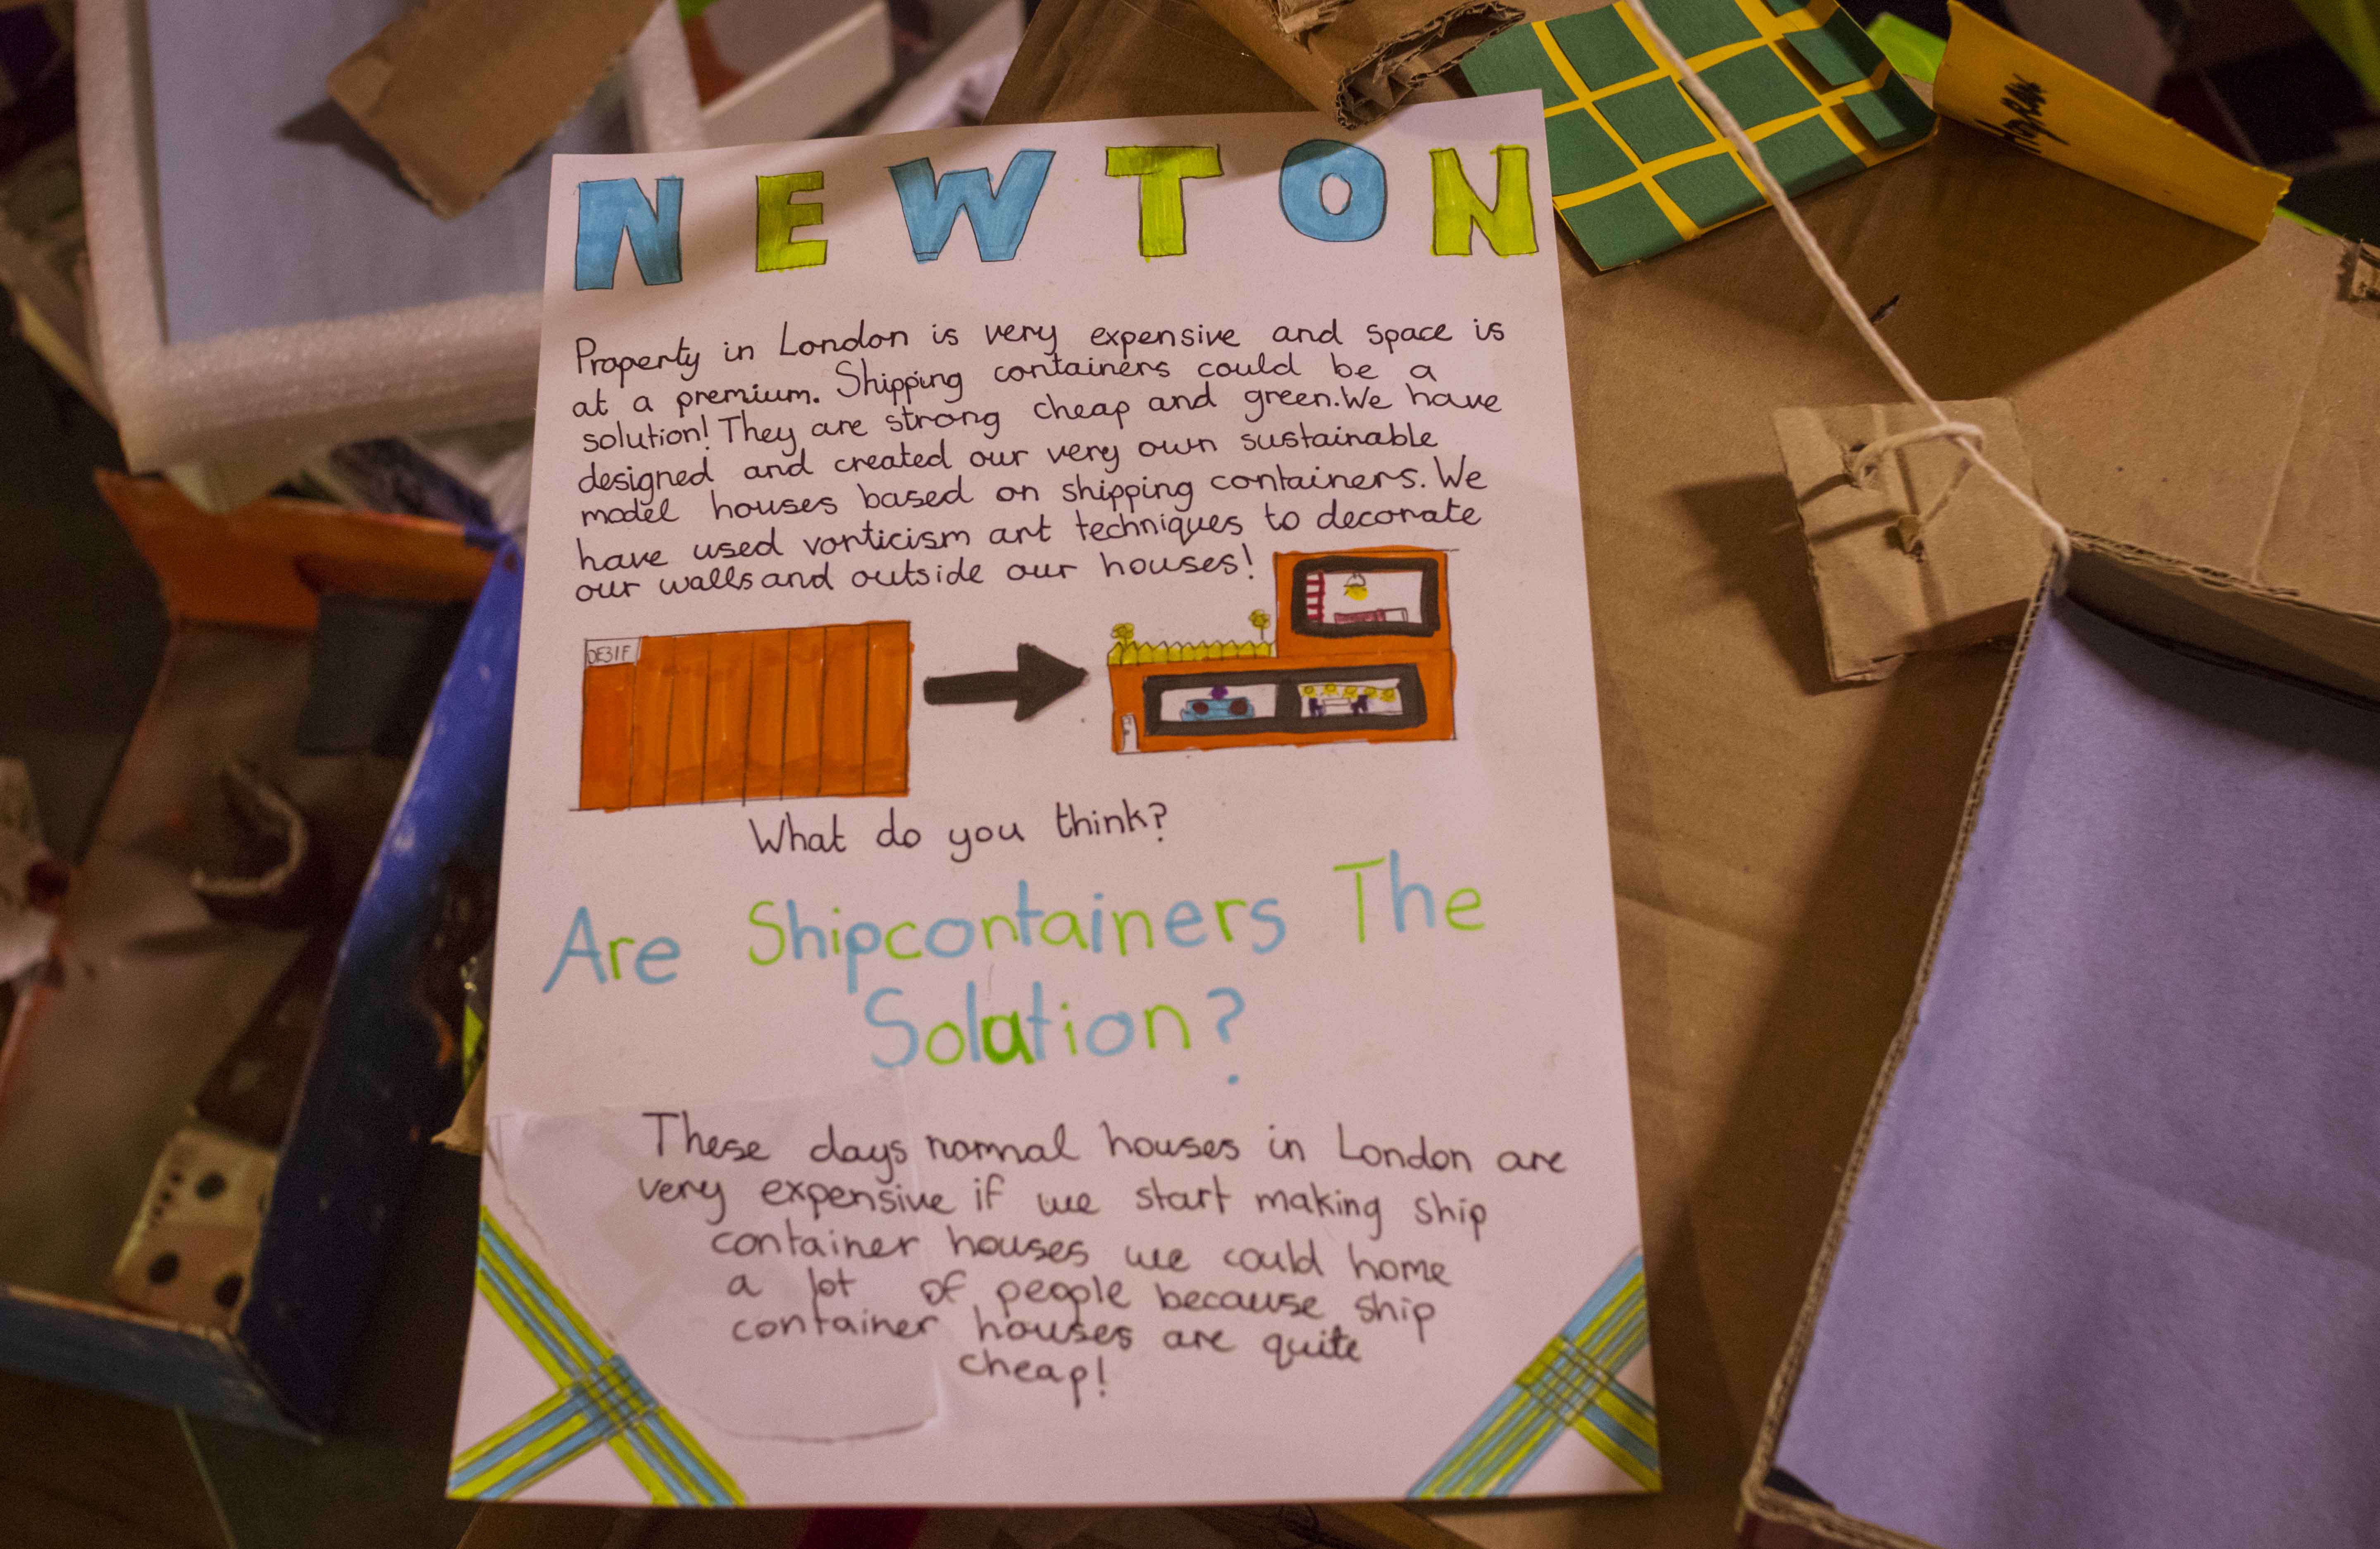 NEWTON
Property in London is very expensive and space is
at a premium. Shipping containers could be a
solution! They are strong cheap and green. We have
designed and created our very own sustainable
model houses based on shipping containers. We
have used vorticism art techniques to decorate
our walls and outside our houses!
What do you think?
Are Shipcontainers The
Solation?
These days normal houses in London are
very expensive if we start making ship
container houses we could home
a lot of people because ship
container houses are quite
cheap!